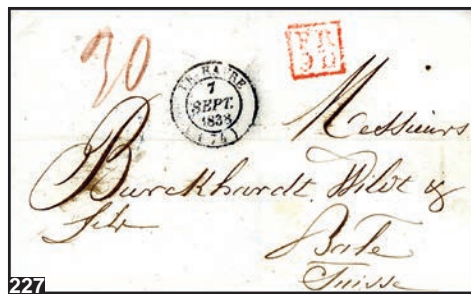 30
LE HAVRE
7
SEPT.
1838
(74)
Messieurs
Burckhardt, Wildt &
fils
Bale
Suisse
227